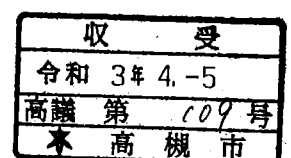 収受
令和 3年 4.-5
高議 第 109 号
★ 高槻市